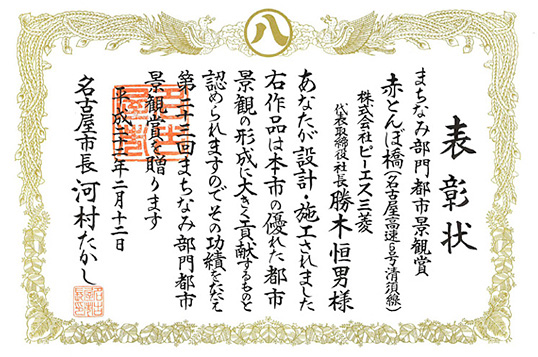 八
表彰状
まちなみ部門都市景観賞
赤とんぼ橋(名古屋高速6号清須線)
株式会社ピーエス三菱
代表取締役社長 勝木恒男様
あなたが設計・施工されました
右作品は本市の優れた都市
景観の形成に大きく貢献するものと
認められますのでその功績をたたえ
第二十三回まちなみ部門都市
景観賞を贈ります
平成二十二年二月十二日
名古屋市長 河村たかし